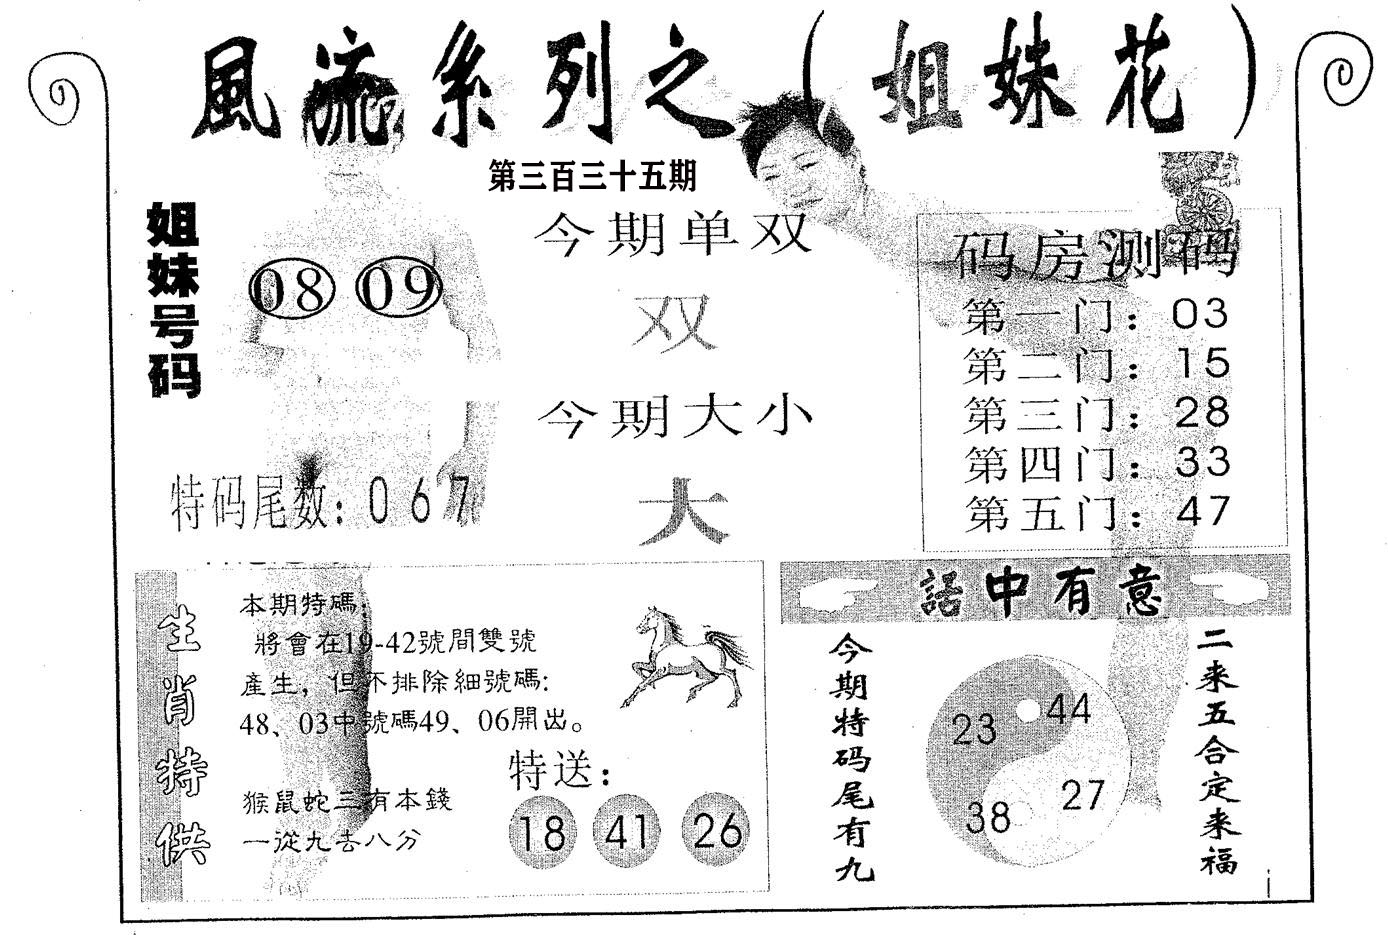 風流系列之（姐妹花）
第三百三十五期
姐妹号码
08 09
特码尾数：0 6 7
今期单双
双
今期大小
大
码房测码
第一门：03
第二门：15
第三门：28
第四门：33
第五门：47
生肖特供
本期特碼：
將會在19-42號間雙號
產生，但不排除細號碼：
48、03中號碼49、06開出。
猴鼠蛇三有本錢
一從九去八分
特送：
18 41 26
話中有意
今期特码尾有九
23 44
38 27
二来五合定来福